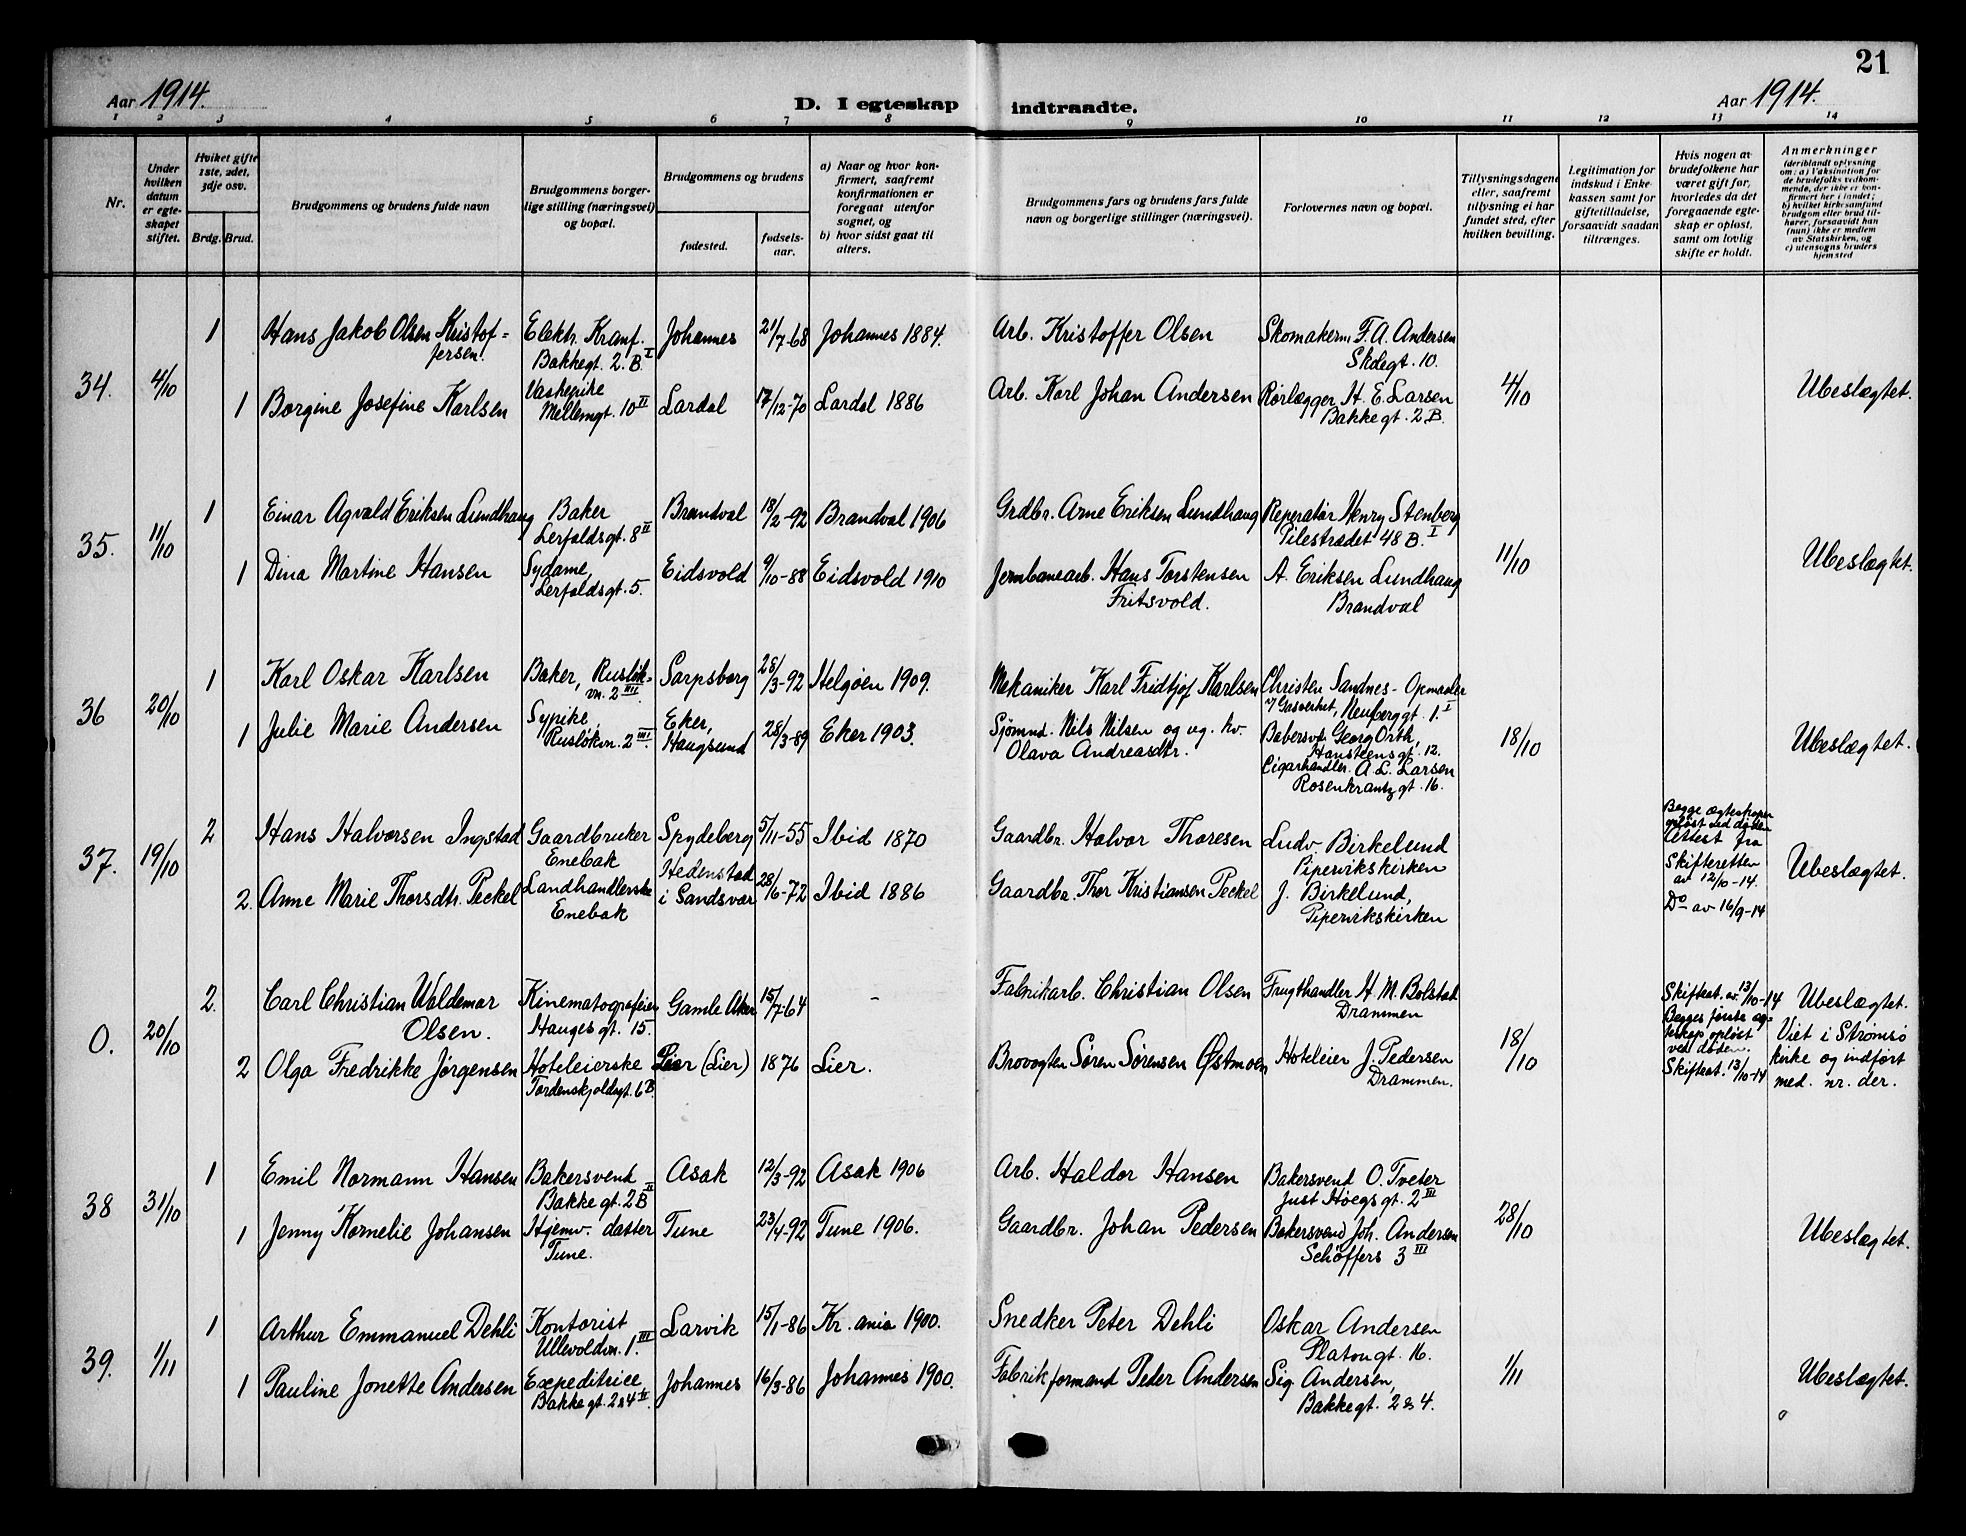 21
Aar 1914.
D. I egteskap indtraadte.
Aar 1914.
1 2 3 4 5 6 7 8 9 10 11 12 13 14
Nr.
Under hvilken datum er egteskapet stiftet.
Hviket gifte 1ste, 2det, 3dje osv.
Brdg. Brud.
Brudgommens og brudens fulde navn
Brudgommens borgerlige stilling (næringsvei) og bopæl.
Brudgommens og brudens
fødested.
fødselsaar.
a) Naar og hvor konfirmert, saafremt konfirmationen er foregaat utenfor sognet, og
b) hvor sidst gaat til alters.
Brudgommens fars og brudens fars fulde navn og borgerlige stillinger (næringsvei).
Forlovernes navn og bopæl.
Tillysningsdagene eller, saafremt tillysning ei har fundet sted, efter hvilken bevilling.
Legitimation for indskud i Enkekassen samt for giftetilladelse, forsaavidt saadan tiltrænges.
Hvis nogen av brudefolkene har været gift før, hvorledes da det foregaaende egteskap er opløst, samt om lovlig skifte er holdt.
Anmerkninger
(deriblandt oplysning om: a) Vaksination for de brudefolks vedkommende, der ikke er konfirmert her i landet; b) hvilket kirkesamfund brudgom eller brud tilhører, forsaavidt han (hun) ikke er medlem av Statskirken, og c) utensogns bruders hjemsted
34. 4/10
1 Hans Jakob Olsen Kristoffersen. Elektr. Kranf. Bakkegt. 2.B. I Johannes 21/7-68 Johannes 1884. Arb. Kristoffer Olsen Skomakerm F.A. Andersen Skolegt. 10.
1 Borgine Josefine Karlsen Vaskepike Mellemgt. 10 II Lardal 17/12-70 Lardal 1886 Arb. Karl Johan Andersen Rørlægger H. E. Larsen Bakkegt. 2.B. 4/10 Ubeslægtet.
35. 11/10
1 Einar Agvald Eriksen Lundhaug Baker Lerfaldsgt. 8 II Brandval 18/2-92 Brandval 1906 Grdbr. Arne Eriksen Lundhaug Reperatør Henry Stenberg Pilestrædet 48 B. I
1 Dina Martine Hansen Sydame, Lerfaldsgt. 5. Eidsvold 9/10-88 Eidsvold 1910 Jernbanearb. Hans Torstensen Fritsvold. A. Eriksen Lundhaug Brandval 11/10 Ubeslægtet.
36 20/10
1 Karl Oskar Karlsen Baker, Rusløkvn. 2 III Sarpsborg 28/3-92 Helgøen 1909. Mekaniker Karl Fridtjof Karlsen Christen Sandnes - Opmaaler v/ Gasverket, Neuberggt. 1. I
1 Julie Marie Andersen Sypike, Rusløkvn. 2 III. Eker, Haugsund 28/3-89 Eker 1903. Sjømnd. Nils Nilsen og ug. kv. Olava Andreasdtr. Georg Orth, Hansteensgt. 12. Cigarhandler. A. L. Larsen Rosenkrantzgt. 16. 18/10 Ubeslægtet.
37. 19/10
2 Hans Halvorsen Ingstad Gaardbruker Enebak Spydeberg 5/11-55 Ibid 1870 Gaardbr. Halvor Thoresen Ludv Birkelund Pipervikskirken Begge ægteskaper opløst ved døden Attest fra Skifteretten av 12/10-14.
2. Anne Marie Thorsdtr. Peckel Landhandlerske Enebak Hedenstad i Sandsvær 28/6-72 Ibid 1886 Gaardbr. Thor Kristiansen Peckel J. Birkelund, Pipervikskirken Do av 16/9-14 Ubeslægtet.
0. 20/10
2. Carl Christian Waldemar Olsen. Kinematografeier Haugesgt. 15. Gamle Aker 15/7-64 - Fabrikarb. Christian Olsen Frugthandler H. M. Bolstad Drammen Skifteat. av. 13/10-14 Begges første egteskap opløst ved døden. Ubeslægtet. Viet i Strømsø kirke og indført med. nr. der.
2 Olga Fredrikke Jørgensen Hoteleierske Tordenskjoldsgt. 6 B. Lier (Lier) 1876 Lier. Brovogter Søren Sørensen Østmoen Hoteleier J. Pedersen Drammen. 18/10 Skifteat. 13/10-14
38 31/10
1 Emil Normann Hansen Bakersvend Bakkegt. 2 B II Asak 12/3-92 Asak 1906 Arb. Haldor Hansen Bakersvend O. Tveter Just Høegsgt. 2 III
1 Jenny Kornelie Johansen Hjemv. datter Tune. Tune 23/4-92 Tune 1906. Gaardbr. Johan Pedersen Bakersvend Joh. Andersen Schøffers 3 III 28/10 Ubeslægtet.
39. 1/11
1 Arthur Emmanuel Dehli Kontorist Ullevoldvn. 1. III Larvik 15/1-86 Kr.ania 1900. Snedker Peter Dehli Oskar Andersen Platougt. 16.
1 Pauline Jonette Andersen Expeditrice Bakkegt. 2 & 4 II. Johannes 16/3-86 Johannes 1900. Fabrikformand Peder Andersen Sig Andersen, Bakkegt. 2 & 4. 1/11 Ubeslægtet.